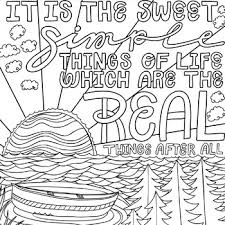 IT IS THE SWEET
Simple
THINGS OF LIFE
WHICH ARE THE
REAL
THINGS AFTER ALL